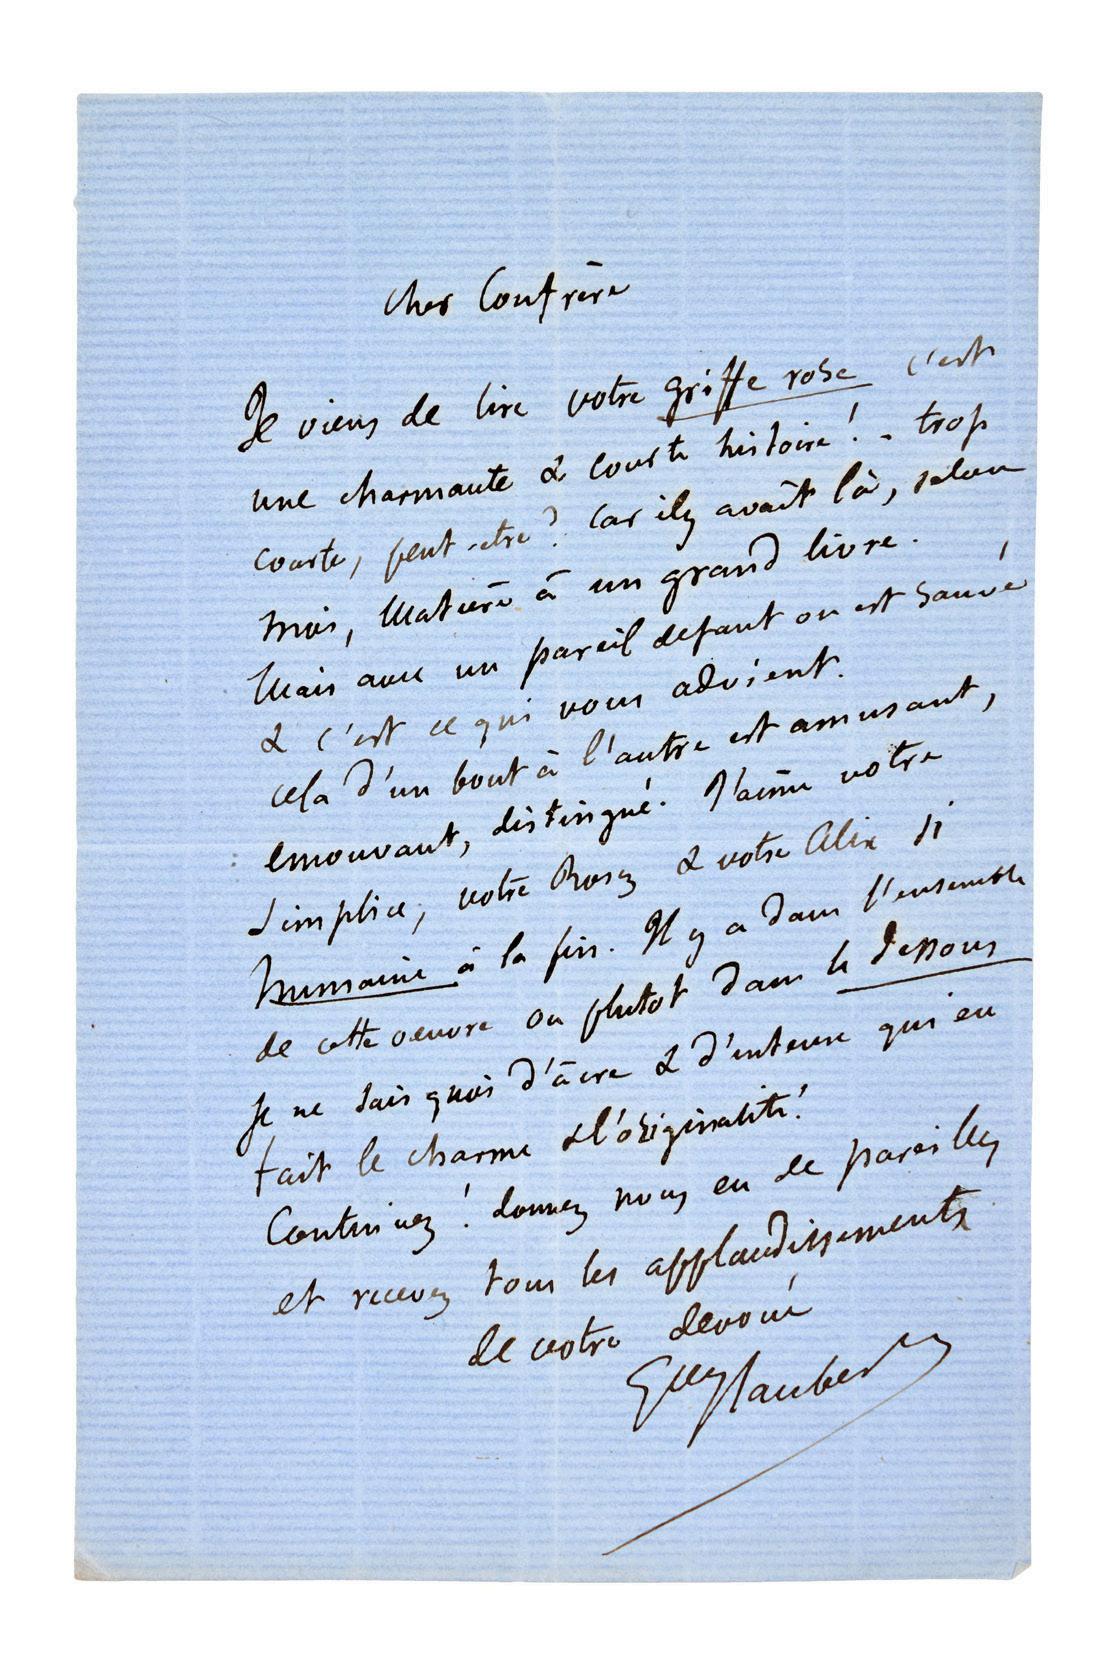 Cher Confrère
Je viens de lire votre griffe rose c'est
une charmante & courte histoire! - trop
courte, peut-etre? Car il y avait là, selon
moi, Matière à un grand livre.
Mais avec un pareil defaut on est sauvé
& c'est ce qui vous advient.
cela d'un bout à l'autre est amusant,
emouvant, distingué. J'aime votre
Simplice, votre Rosey & votre Alix si
humaine à la fin. Il y a dans l'ensemble
de cette oeuvre ou plutot dans le dessous
Je ne sais quoi d'âcre & d'intense qui en
fait le charme & l'originalité!
Continuez! donnez nous en de pareilles
et recevez tous les applaudissements
de votre devoué
Gve Flaubert